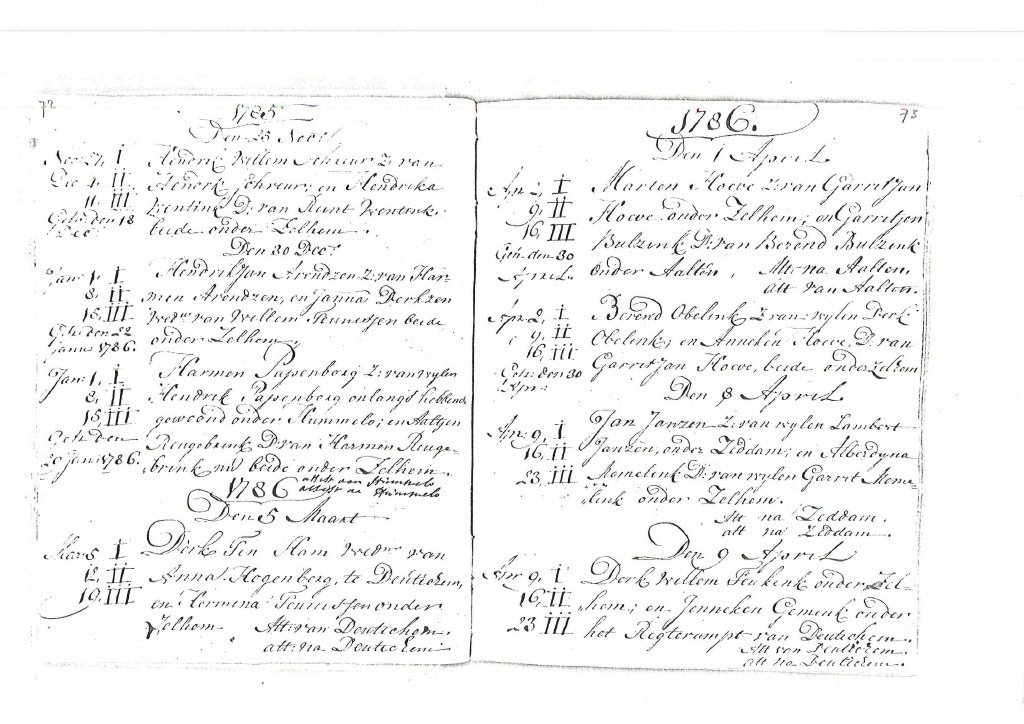 72
1785
Den 25 Novr
Nov: 27, I Hendric Willem Schreur Z: van
Dec 4, II Hendrk Schreur; en Hendrika
11, III Wentink D: van Runt Wentenk
Geh: den 18 Decr beide onder Zelhem.
Den 30 Decr
Janr 1, I Hendrik Jan Arendzen Z: van Har-
8, II men Arendzen, en Janna Derkzen
15, III Wedw van Willem beide
Geh: den 22 Janr 1786. onder Zelhem.
Jan: 1, I Harmen Papenborg Z: van wylen
8, II Hendrik Papenborg onlangs hebbende
15, III gewoond onder Hummelo; en Aaltjen
Geh: den Reugebrink D: van Harmen Reuge-
20 Jan: 1786. brink nu beide onder Zelhem.
attest van Hummelo
1786 attest na Hummelo
Den 5 Maart
5 I Derk Ten Ham Wedwr van
12, II Anna Hogenberg, te Deutichem,
19, III en Hermina Teunissen onder
Zelhem Att: van Deutichem.
att: na Deutichem
73
1786.
Den 1 April
Ap: 2, I Marten Hoeve Z: van Garrit Jan
9, II Hoeve onder Zelhem; en Garritjen
16, III Bulzenk D: van Berend Bulzenk
Geh: den 30 April onder Aalten, Att: na Aalten.
att van Aalten.
Ap: 2, I Berend Obelenk Z: van wylen Derk
9, II Obelenk; en Anneken Hoeve D: van
16, III Garrit Jan Hoeve, beide onder Zelhem
Geh: den 30 Apr:
Den 8 April
Ap: 9, I Jan Janzen Z: van wylen Lambert
16, II Janzen, onder Zeddam; en Alberdyna
23, III Memelenk D: van wylen Garrit Meme-
lenk onder Zelhem.
Att na Zeddam.
att na Zeddam.
Den 9 April
Apr 9, I Derk Willem Fenkenk onder Zel-
16, II hem; en Jenneken Gemenk onder
23 III het Rigterampt van Deutichem.
Att van Deutichem.
att na Deutichem.